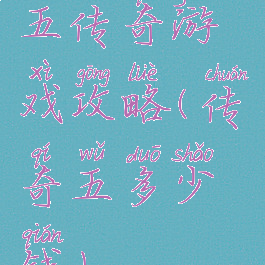 五传奇游
xì gōng lüè chuán
戏攻略(传
qí wǔ duō shǎo
奇五多少
qián
钱)